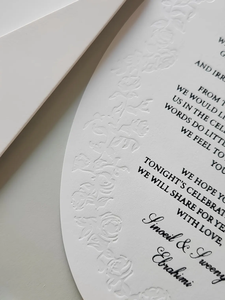 W
GO
AND IRR
FROM T
WE WOULD L
US IN THE CEL
WORDS DO LITTL
WE FEEL TO
YOU
WE HOPE YO
TONIGHT'S CELEBRAT
WE WILL SHARE FOR YE
WITH LOVE,
&
Ebrahimi